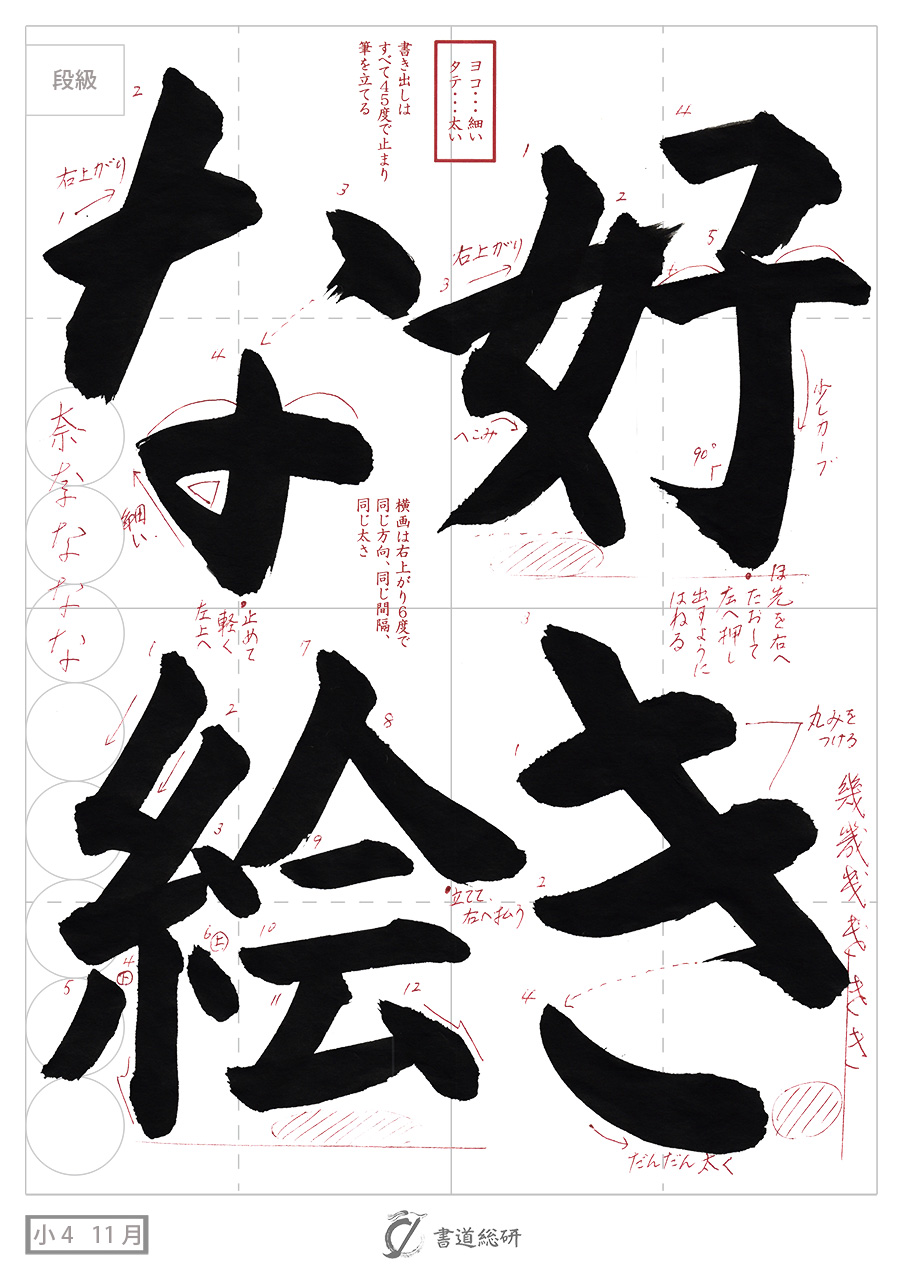 好き
な絵
段級
ヨコ・・・細い
タテ・・・太い
書き出しは
すべて45度で止まり
筆を立てる
横画は右上がり6度で
同じ方向、同じ間隔、
同じ太さ
1
2
3
右上がり
へこみ
4
5
少しカーブ
90°
ほ先を右へ
たおして
左へ押し
出すように
はねる
1
右上がり
2
3
4
細い
止めて
軽く
左上へ
奈
な
な
な
な
1
2
3
4
丸みを
つける
だんだん太く
幾
幾
き
き
き
1
2
3
4
下
5
6
上
7
8
9
10
11
12
立てて、
右へ払う
小4 11月
書道総研